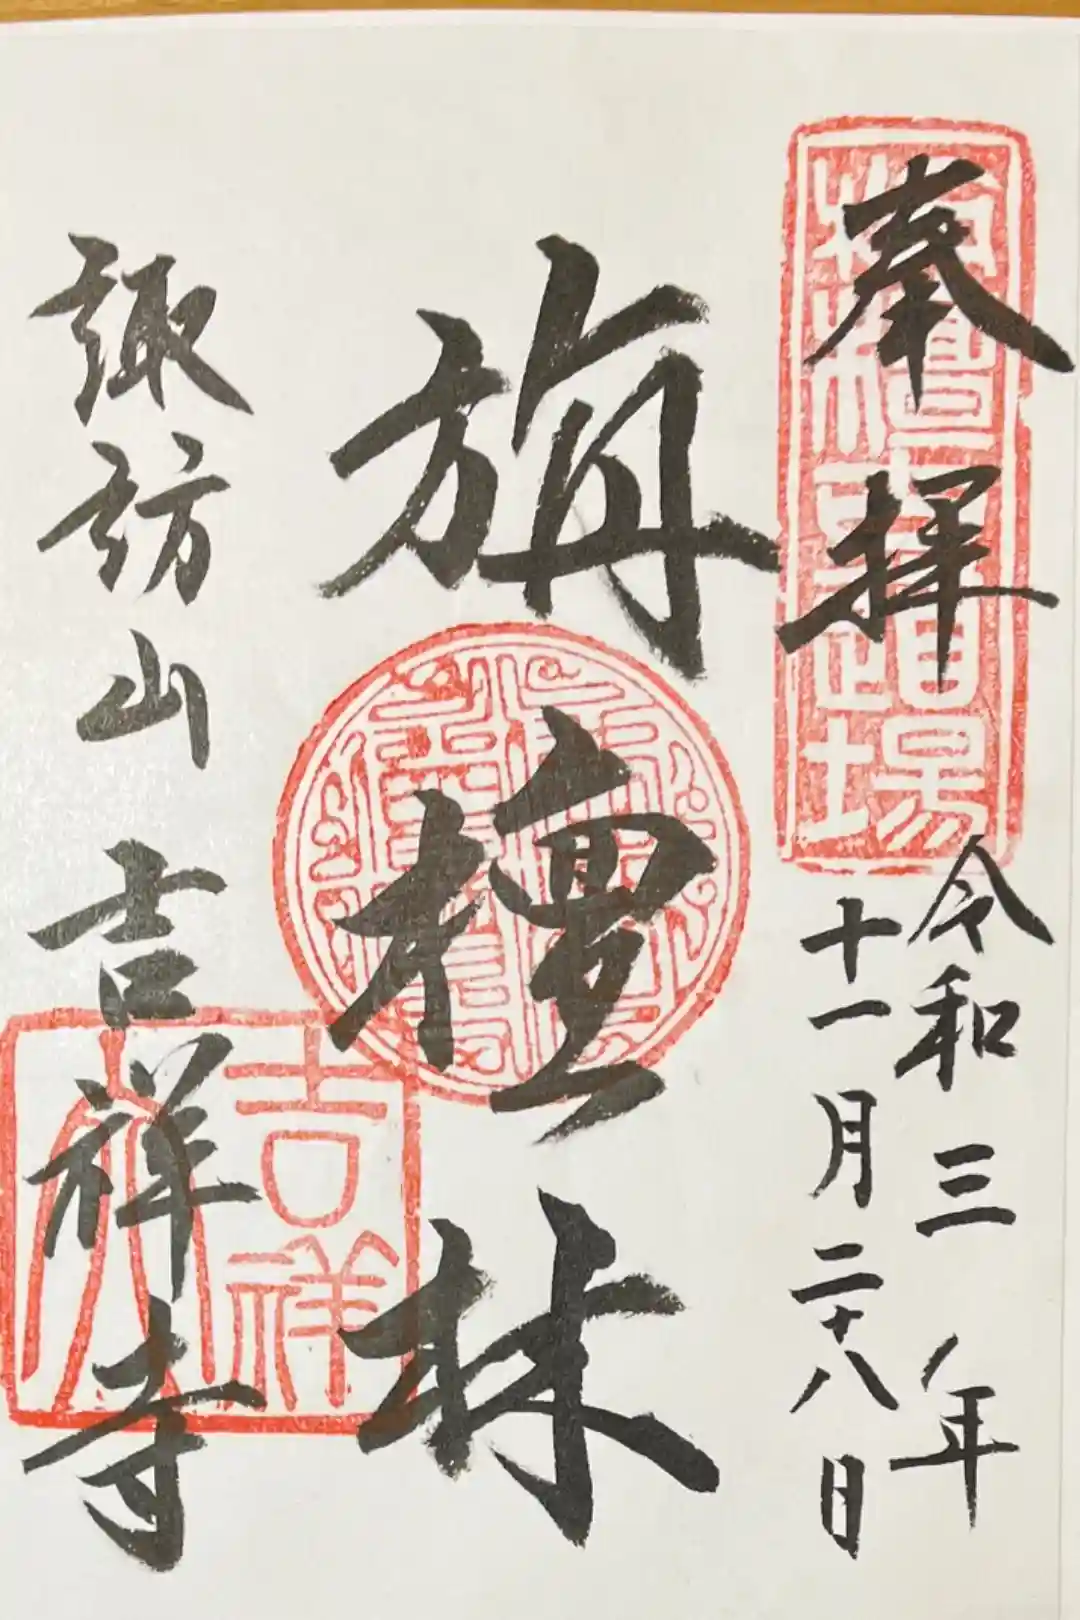 奉拝
令和三年
十一月二十八日
旃檀林
諏訪山 吉祥寺
吉祥